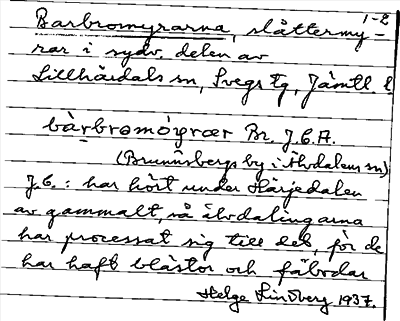 1-2
Barbromyrarna, slåttermy-
rar i sydv. delen av
Lillhärdals sn, Svegs tg, Jämtl. l
bàrbromó̀yrær Br. J.E.A.
(Brunnsbergs by i Älvdalens sn)
J.E.: har hört under Härjedalen
av gammalt, så älvdalingarna
har processat sig till det, för de
har haft blästor och fäbodar
Helge Lindberg 1937.